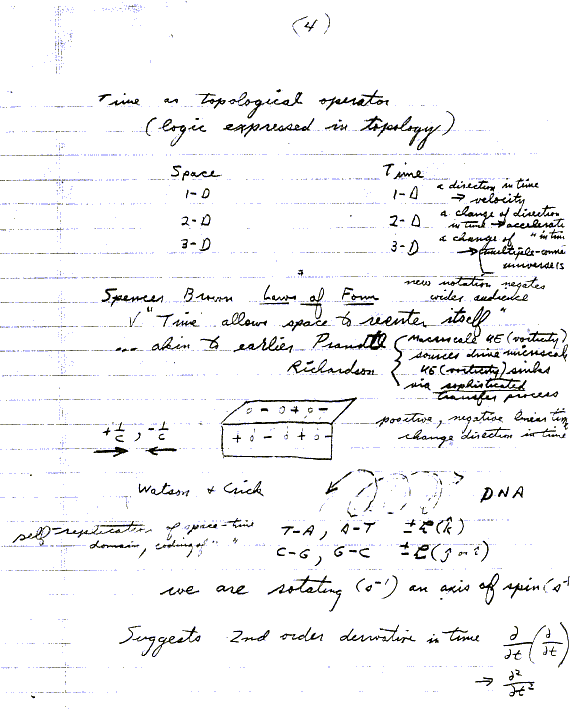 (4)
Time as topological operator
(logic expressed in topology)
Space Time
1-D 1-D a direction in time → velocity
2-D 2-D a change of direction in time → accelerate
3-D 3-D a change of " in tim → multiple-conne universes
new notation negates wider audience
Spencer Brown Laws of Form
√ "Time allows space to reenter itself"
... akin to earlier Prandtl
Richardson
macroscale KE (vorticity)
sources drive microscal
KE (vorticity) sinks
via sophisticated
transfer process
o - o + o -
+ o - o + o -
+1/c , -1/c
positive, negative linear tim
change direction in time
Watson + Crick DNA
self-replication of space-time
domain, coding of " "
T-A, A-T ± (k̂)
C-G, G-C ± (ĵ or î)
we are rotating (s⁻¹) an axis of spin (s⁻¹
Suggests 2nd order derivative in time ∂/∂t (∂/∂t)
→ ∂²/∂t²